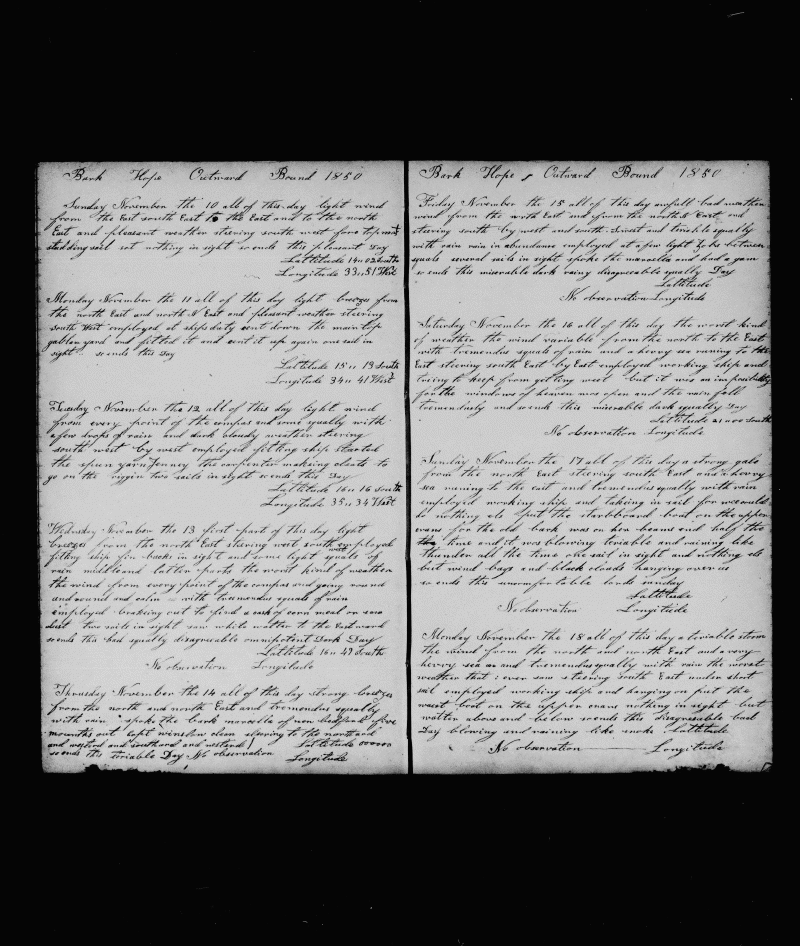 Bark Hope Outward Bound 1850
Sunday November the 10 all of this day light wind
from the East south East to the East and to the north
East and pleasant weather steering south west fore topmast
studding sail sat nothing in sight so ends this pleasant Day
Lattitude 14 " 02 South
Longitude 33 " 51 West
Monday November the 11 all of this day light breezes from
the north East and north N East and pleasant weather steering
south West employed at ships duty sent down the main top
gallon yard and fitted it and sent it up again one sail in
sight so ends this Day
Lattitude 15 " 13 South
Longitude 34 " 41 West
Tuesday November the 12 all of this day light wind
from every point of the compas and some squally with
a few drops of rain and dark cloudy weather steering
south west by west employed fitting ship started
the spun yarn Jenney the carpenter makeing cleats to
go on the riggin two sails in sight so ends this Day
Lattitude 16 " 16 South
Longitude 35 " 34 West
Wednsday November the 13 first part of this day light
breezes from the north East steering west south west employed
fitting ship fin backs in sight and some light squals of
rain middle and latter parts the worst kind of weather
the wind from every point of the compas and going round
and around and calm with tremendus squals of rain
employed breaking out to find a cask of corn meal or saw
dust two sails in sight saw white watter to the Eastward
so ends this bad squally disagreeable omnipotent Dark Day
Lattitude 16 " 47 South
No observation Longitude
Thrusday November the 14 all of this day strong breezes
from the north and north East and tremendus squally
with rain spoke the bark marcella of new bedford five
mounths out capt winslow clean steering to the north and
and westerd and southard and westerd Lattitude 000000
so ends this teriable Day No observation Longitude
Bark Hope Outward Bound 1850
Friday November the 15 all of this day awfull bad weather
wind from the north East and from the north & East and
steering south by west and south S west and teriable squally
with rain rain in abundance employed at a few light Jobs between
squals several sails in sight spoke the marcella and had a gam
so ends this miserable dark rainy disagreeable squally Day
Lattitude
No observation Longitude
Saturday November the 16 all of this day the worst kind
of weather the wind variable from the north to the East
with tremendus squals of rain and a hevry sea runing to the
East steering south East by East employed working ship and
trying to keep from getting west but it was an imposibility
for the windows of heaven was open and the rain fell
tremendusly and so ends this miserable dark squally Day
Lattitude 21 " 00 South
No observation Longitude
Sunday November the 17 all of this day a strong gale
from the north East steering south East and a hevry
sea runing to the east and tremendus squally with rain
employed working ship and takeing in sail for we could
do nothing els put the starbboard boat on the upper
crans for the old bark was on her beams end half the
time and it was blowing teriable and raining like
thunder all the time one sail in sight and nothing els
but wind bags and black clouds hanging over us
so ends this uncomfortable lords sunday
Lattitude
No observation Longitude
Monday November the 18 all of this day a teriable storm
the wind from the north and north East and a very
hevry sea on and tremendus squally with rain the worst
weather that i ever saw steering South East under short
sail employed working ship and hanging on put the
waist boat on the upper crans nothing in sight but
watter above and below so ends this disagreeable bad
Day blowing and raining like smoke Lattitude
No observation Longitude